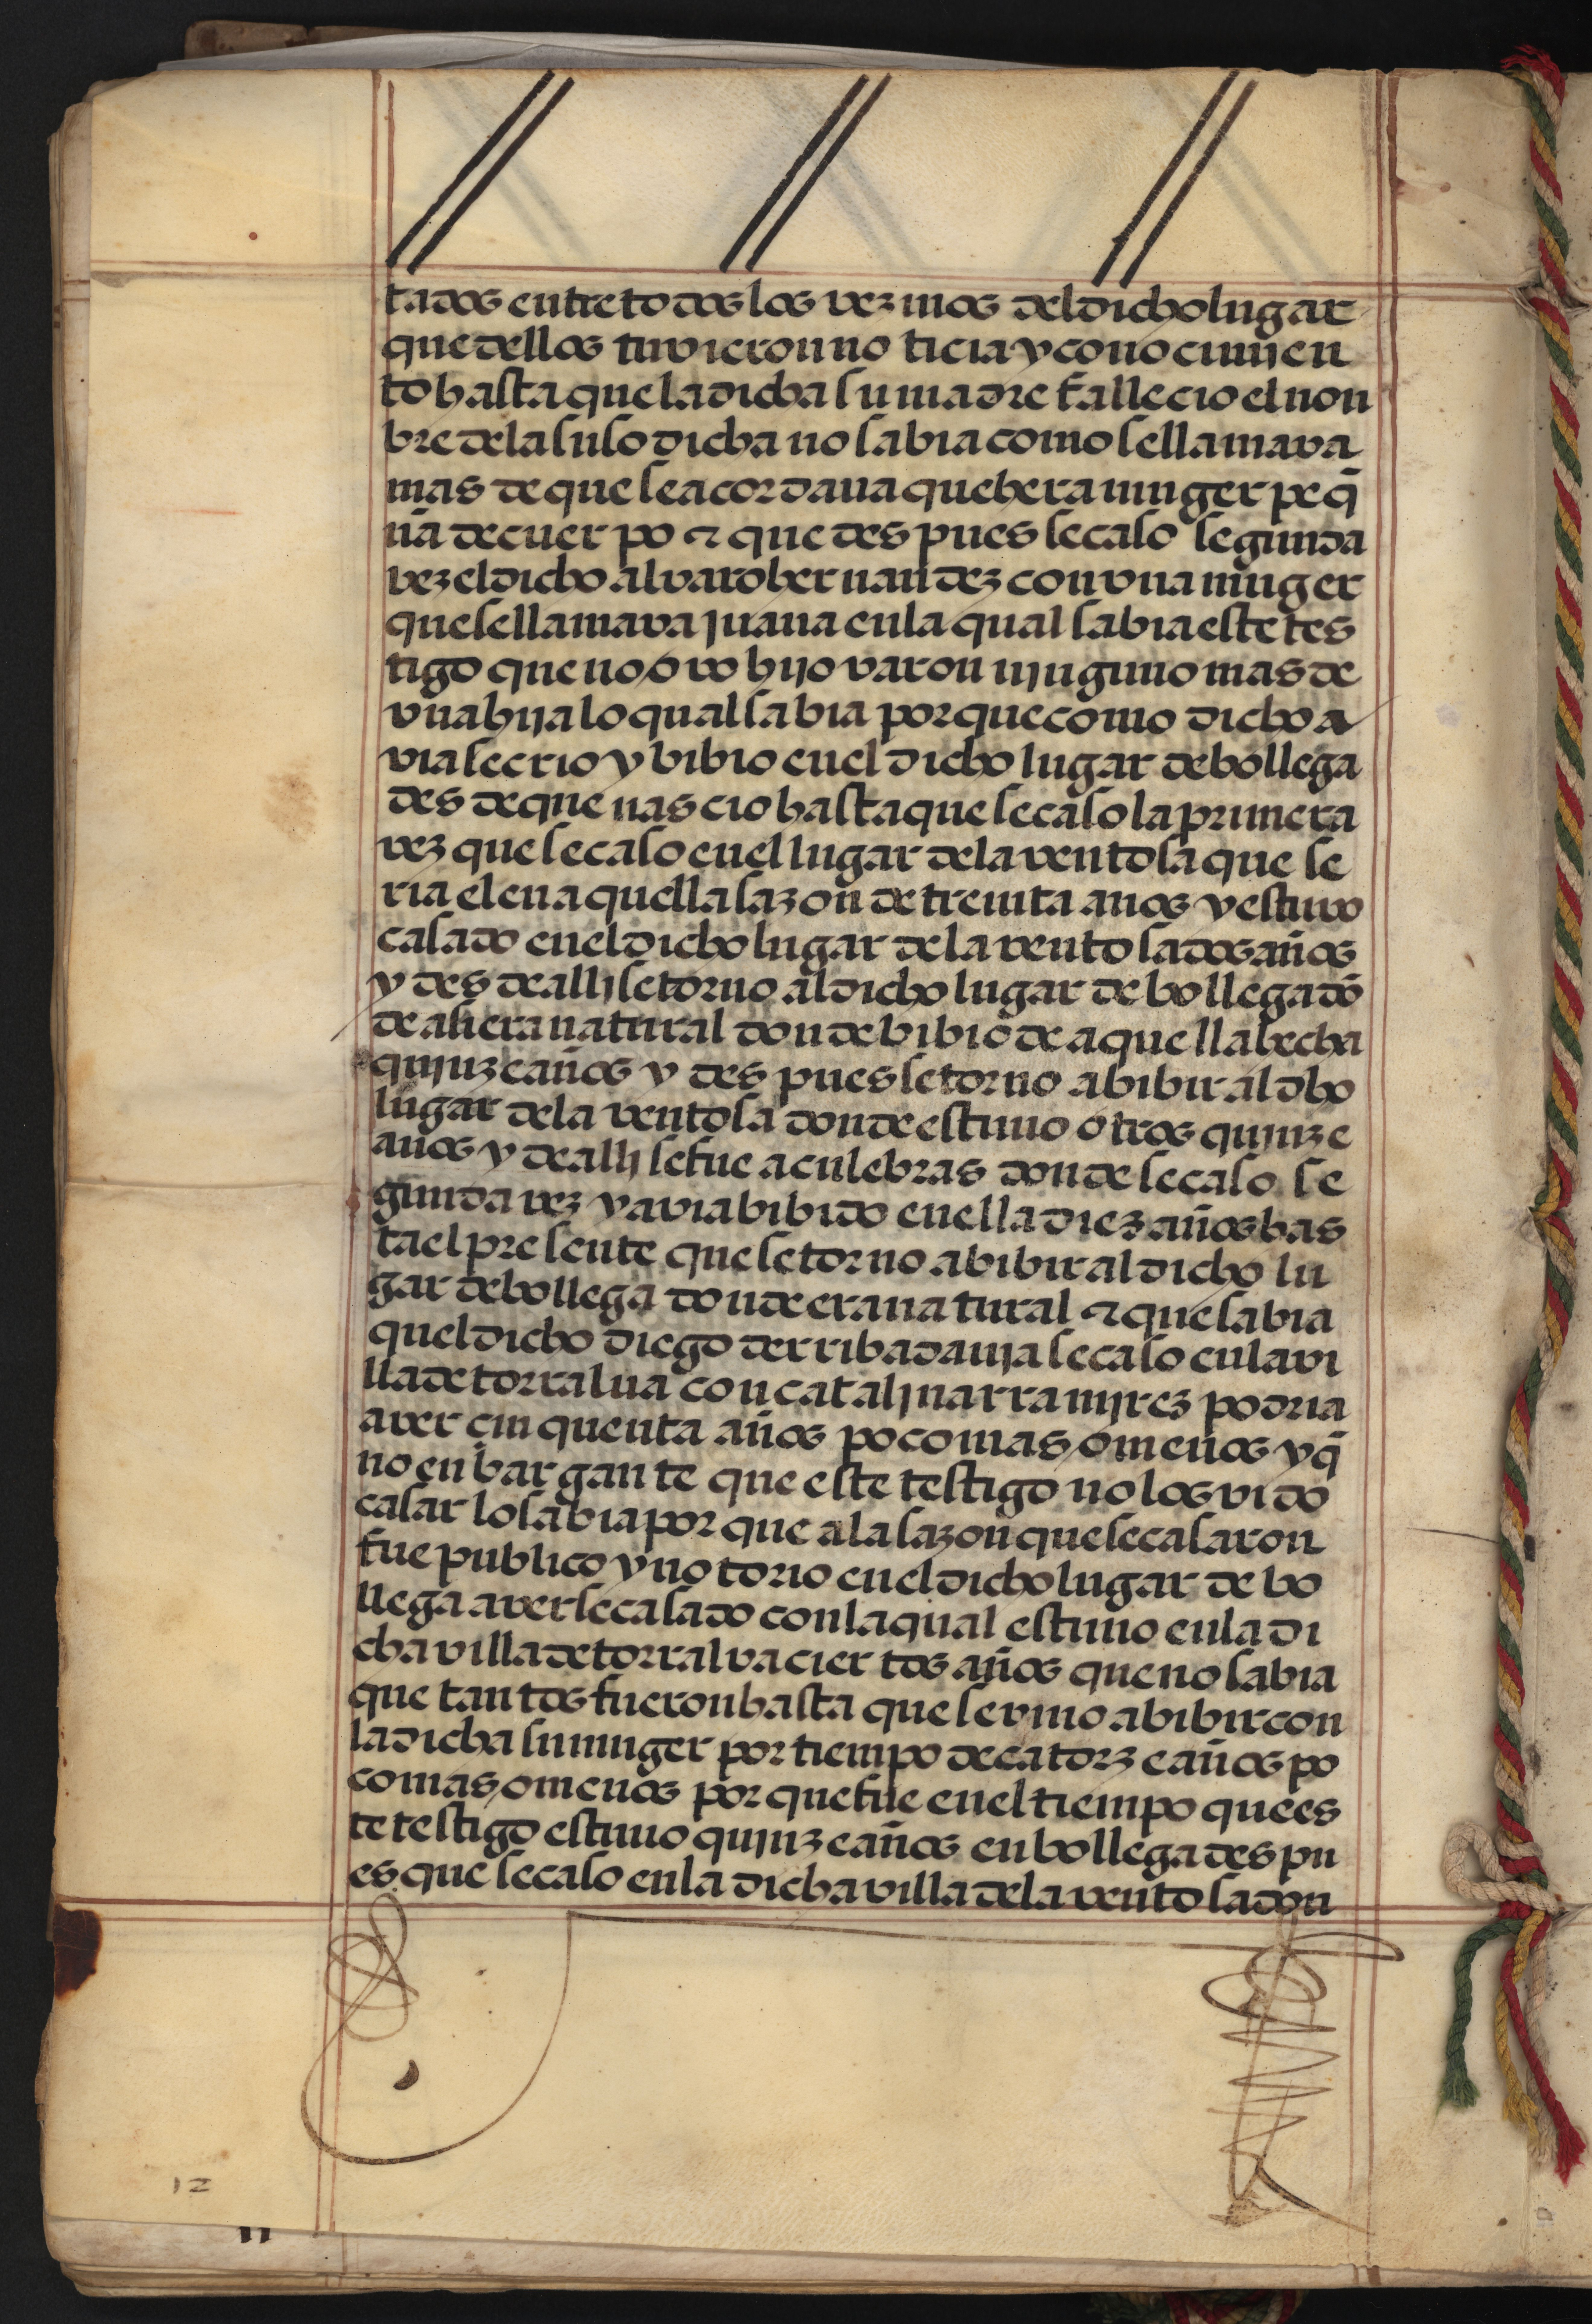 tados entre todos los vezinos del dicho lugar
que dellos tuvieron no ticia y conocimjen
to hasta que la dicha su madre fallecio el non
bre de la suso dicha no sabia como se llamava
mas de que se acordaua que hera muger peq̃
ña de cuer po ⁊ que des pues se caso segunda
vez el dicho alvaro hernandez con vna muger
que se llamava juana en la qual sabia este tes
tigo que no o vo hijo varon njnguno mas de
vna hija lo qual sabia porque como dicho a
via se crio y bibio en el dicho lugar de bollega
des de que nas cio hasta que se caso la primera
vez que se caso en el lugar de la ventosa que se
ria el en aquella sazon de treinta anos y estuvo
casado en el dicho lugar de la ventosa dos años
y des de allj se torno al dicho lugar de bollega dõ
de al hera natural donde bibio de aquella hecha
qujnze años y des pues se torno a bibir al dho
lugar de la ventosa donde estuuo otros qujnze
años y de allj se fue a culebras donde se caso se
gunda vez y avia bibido en ella diez años has
ta el presente que se torno a bibir al dicho lu
gar de bollega donde era natural ⁊ que sabia
quel dicho diego de rribadauja se caso en la vi
lla de torralua con cataljna rramjrez podria
aver cinquenta años poco mas o menos y q̃
no enbar gante que este testigo no los vido
casar lo sabia por que a la sazon que se casaron
fue publico y no torio en el dicho lugar de bo
llega averse casado con la qual estuuo en la di
cha villa de torralva cier tos años que no sabia
que tantos fueron hasta que se vino a bibir con
la dicha su muger por tiempo de catorze años po
co mas o menos por que fue en el tiempo que es
te testigo estuuo qujnze años en bollega des pu
es que se caso en la dicha villa de la ventosa don
12
11